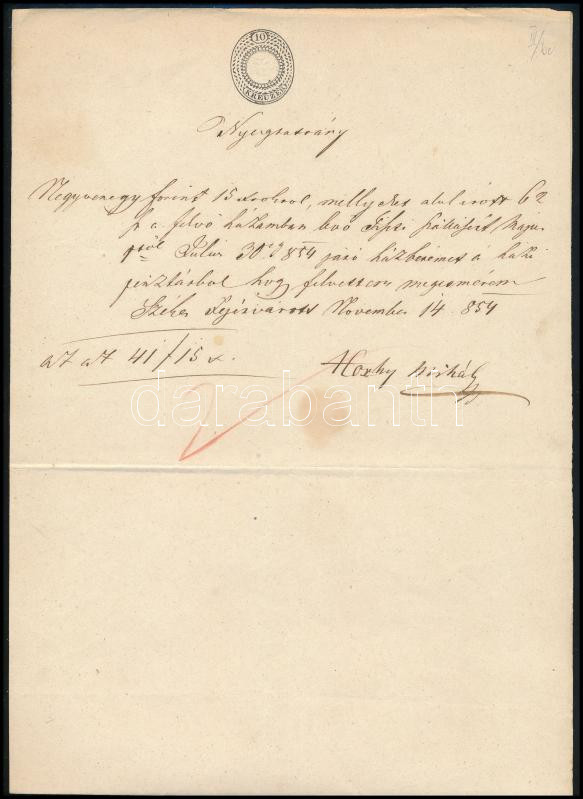 10
KREUZER
Nyugtatvány
Negyvenegy forint 15 xrokrol, mellyeket alul irott 62
a felvő házamban levő szállásért Maju
1ső Julius 30ig 854 járó házbéremet a házi
pénztárbol hogy felvettem megismérem
Székes Fejérvárott November 14 854
az az 41/15 x.
Hoxhy Mihály
darabanth